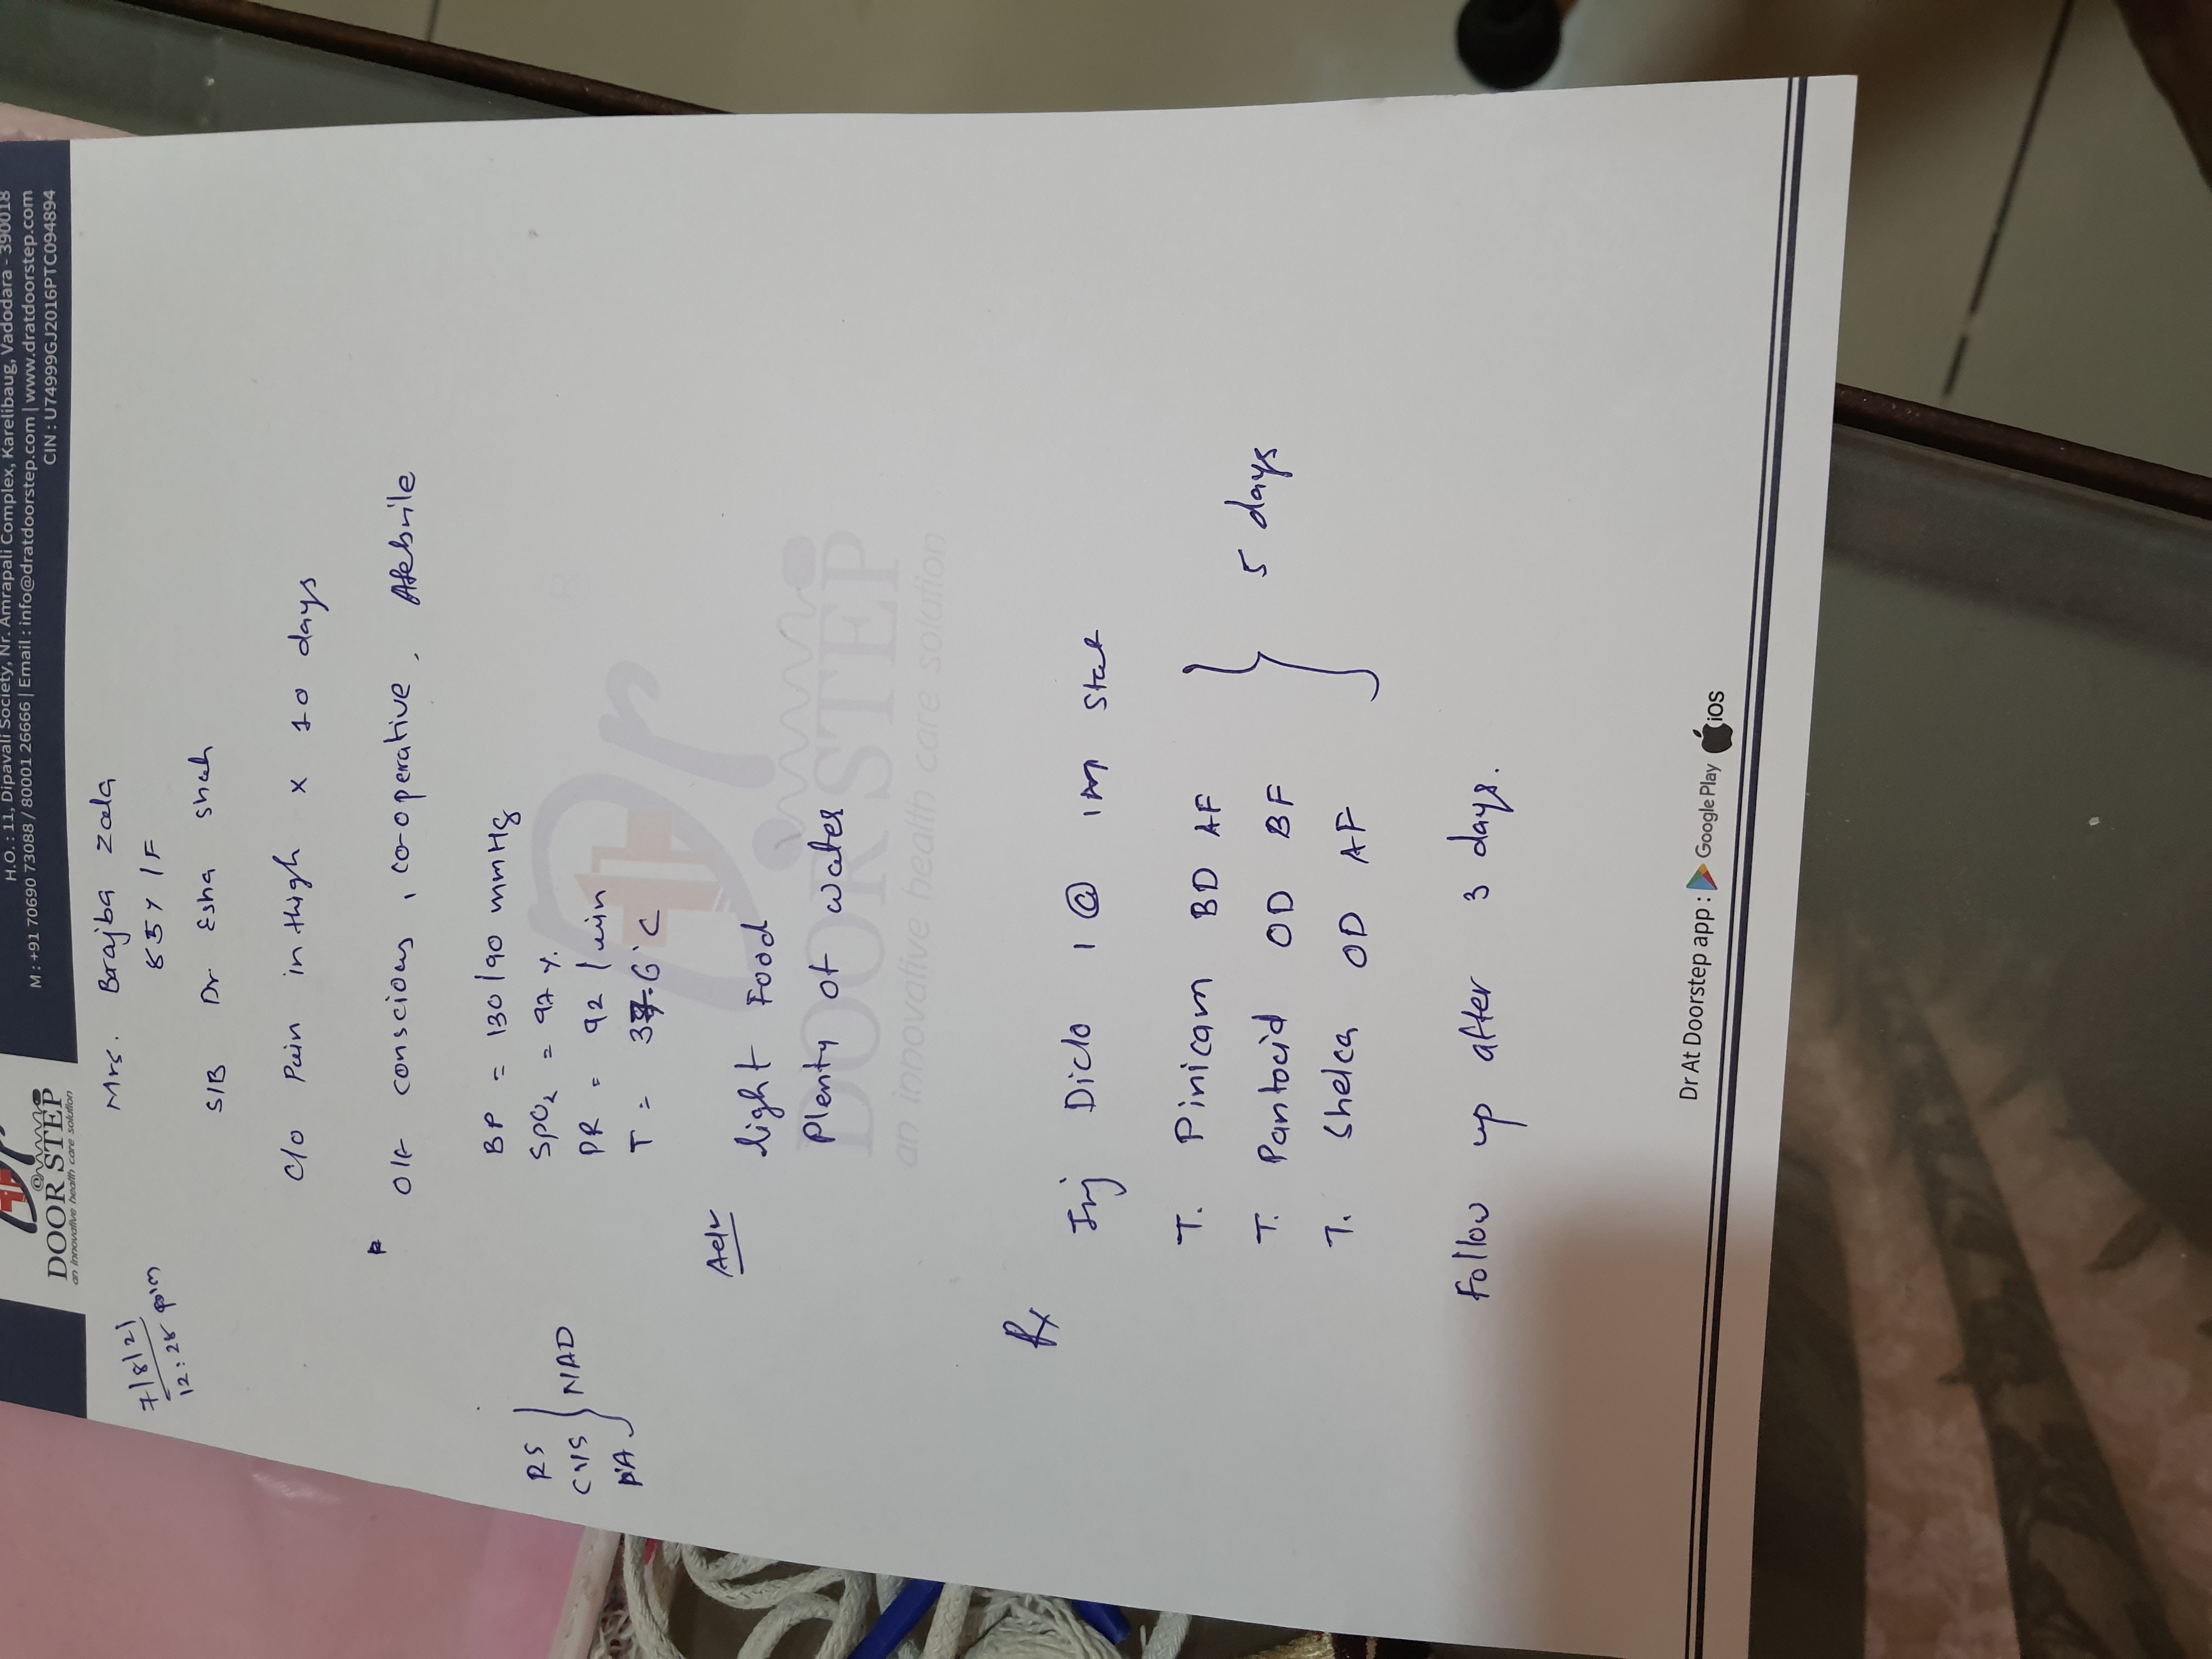 Dr
DOOR STEP
an innovative health care solution
H.O. : 11, Dipavali Society, Nr. Amrapali Complex, Karelibaug, Vadodara - 390018
M : +91 70690 73088 / 80001 26666 | Email : info@dratdoorstep.com | www.dratdoorstep.com
CIN : U74999GJ2016PTC094894
7/8/21
12:28 pm
Mrs. Brajba Zala
85Y/F
S/B Dr Esha Shah
C/o Pain in thigh x 10 days
O/E conscious, co-operative, Afebrile
BP = 130/90 mmHg
SpO2 = 97 %
PR = 92 /min
T = 37.6°C
RS
CVS
P/A
NAD
Adv
light Food
Plenty of water
Dr
DOOR STEP
an innovative health care solution
Rx
Inj Diclo 1 @ IM Stat
T. Pinicam BD AF
T. Pantocid OD BF
T. Shelca OD AF
5 days
Follow up after 3 days.
Dr At Doorstep app : Google Play iOS